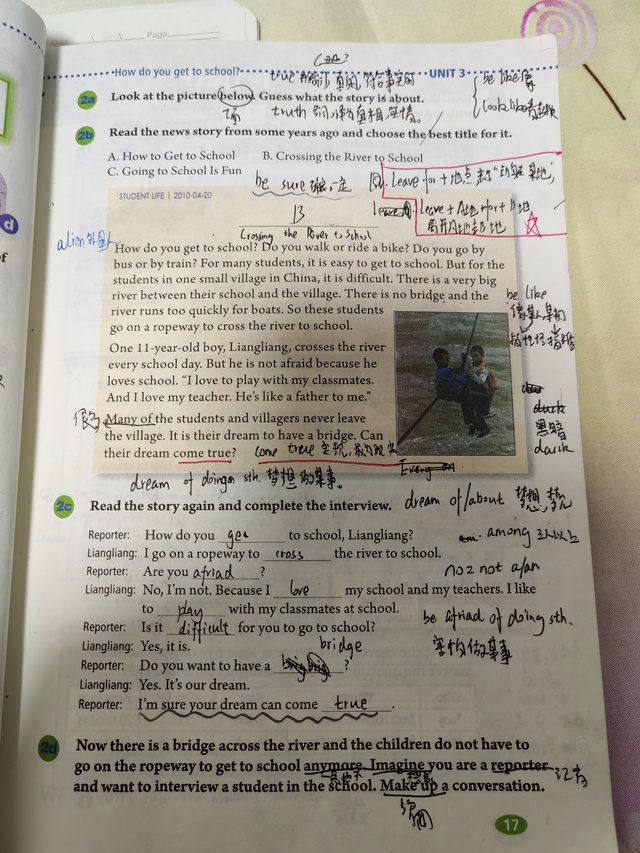 Page:
How do you get to school?
UNIT 3
be like像
look like看起来
2a Look at the picture below. Guess what the story is about.
2b Read the news story from some years ago and choose the best title for it.
A. How to Get to School B. Crossing the River to School
C. Going to School Is Fun
be sure 确定
leave for + 地点 表示"动身去某地"
leave + A地 + for + B地
离开A地去B地
STUDENT LIFE | 2010-04-20
B
Crossing the River to School
How do you get to school? Do you walk or ride a bike? Do you go by
bus or by train? For many students, it is easy to get to school. But for the
students in one small village in China, it is difficult. There is a very big
river between their school and the village. There is no bridge and the
river runs too quickly for boats. So these students
go on a ropeway to cross the river to school.
be like
One 11-year-old boy, Liangliang, crosses the river
every school day. But he is not afraid because he
loves school. "I love to play with my classmates.
And I love my teacher. He's like a father to me."
黑暗
dark
Many of the students and villagers never leave
the village. It is their dream to have a bridge. Can
their dream come true? come true 实现,成为现实
dream of doing sth. 梦想做某事。
dream of/about 梦想,梦见
2c Read the story again and complete the interview.
Reporter: How do you get to school, Liangliang?
among 三人以上
Liangliang: I go on a ropeway to cross the river to school.
Reporter: Are you afriad?
no=not a/an
Liangliang: No, I'm not. Because I love my school and my teachers. I like
to play with my classmates at school.
be afriad of doing sth.
害怕做某事
Reporter: Is it difficult for you to go to school?
Liangliang: Yes, it is.
bridge
Reporter: Do you want to have a ?
Liangliang: Yes. It's our dream.
Reporter: I'm sure your dream can come true.
2d Now there is a bridge across the river and the children do not have to
go on the ropeway to get to school anymore. Imagine you are a reporter
记者
and want to interview a student in the school. Make up a conversation.
17